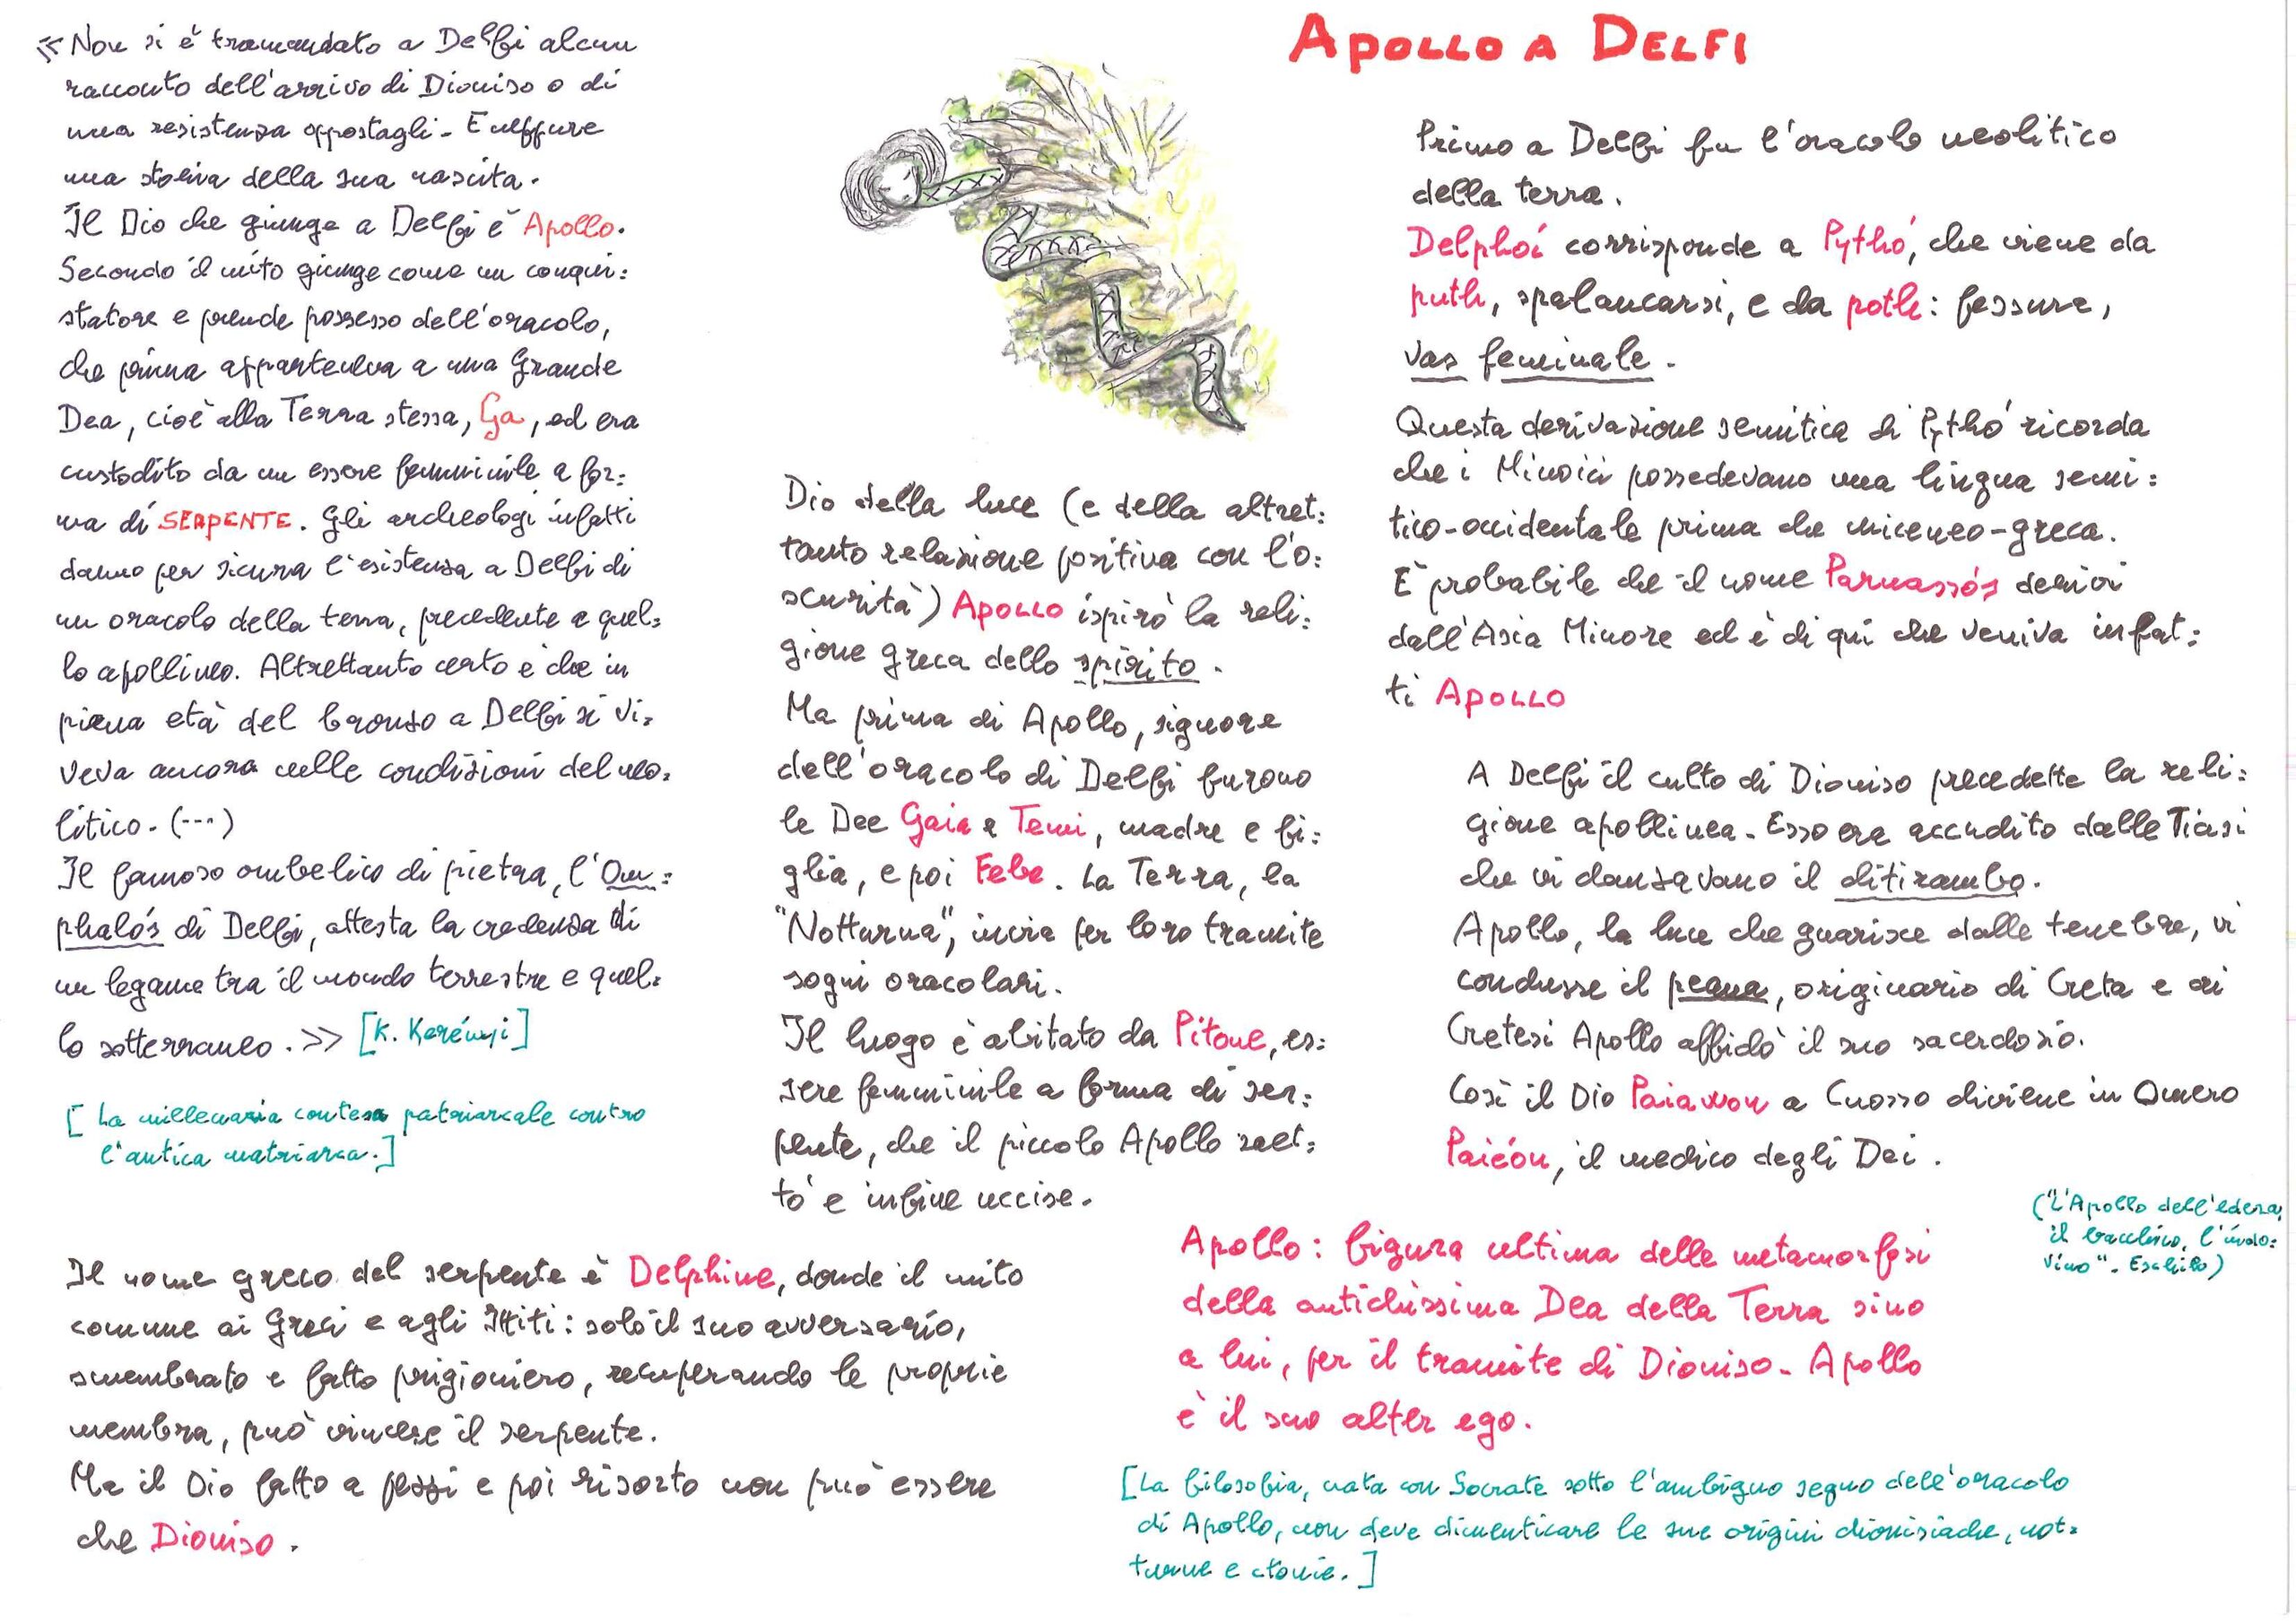 APOLLO A DELFI
«Non si è tramandato a Delfi alcun
racconto dell'arrivo di Dioniso o di
una resistenza oppostagli. E neppure
una storia della sua nascita.
Il Dio che giunge a Delfi è Apollo.
Secondo il mito giunge come un conqui:
statore e prende possesso dell'oracolo,
che prima apparteneva a una Grande
Dea, cioè alla Terra stessa, Ga, ed era
custodito da un essere femminile a for:
ma di SERPENTE. Gli archeologi infatti
danno per sicura l'esistenza a Delfi di
un oracolo della terra, precedente a quel:
lo apollineo. Altrettanto certo è che in
piena età del bronzo a Delfi si vi:
veva ancora nelle condizioni del neo:
litico. (...)
Il famoso ombelico di pietra, l'Om:
phalós di Delfi, attesta la credenza di
un legame tra il mondo terrestre e quel:
lo sotterraneo.>> [K. Kerényi]
[La millenaria contesa patriarcale contro
l'antica matriarca.]
Dio della luce (e della altret:
tanto relazione positiva con l'o:
scurità) APOLLO ispirò la reli:
gione greca dello spirito.
Ma prima di Apollo, signore
dell'oracolo di Delfi furono
le Dee Gaia e Temi, madre e fi:
glia, e poi Febe. La Terra, la
"Notturna", invia per loro tramite
sogni oracolari.
Il luogo è abitato da Pitone, es:
sere femminile a forma di ser:
pente, che il piccolo Apollo saet:
tò e infine uccise.
Il nome greco del serpente è Delphine, donde il mito
comune ai Greci e agli Ittiti: solo il suo avversario,
smembrato e fatto prigioniero, recuperando le proprie
membra, può vincere il serpente.
Ma il Dio fatto a pezzi e poi risorto non può essere
che Dioniso.
Primo a Delfi fu l'oracolo neolitico
della terra.
Delphoí corrisponde a Pythó, che viene da
puth, spalancarsi, e da poth: fessura,
vas feminale.
Questa derivazione semitica di Pythó ricorda
che i Minoici possedevano una lingua semi:
tico-occidentale prima che miceneo-greca.
È probabile che il nome Parnassós derivi
dall'Asia Minore ed è di qui che veniva infat:
ti APOLLO
A Delfi il culto di Dioniso precedette la reli:
gione apollinea. Esso era accudito dalle Tiasi
che vi danzavano il ditirambo.
Apollo, la luce che guarisce dalle tenebre, vi
condusse il peana, originario di Creta e ai
Cretesi Apollo affidò il suo sacerdozio.
Così il Dio Paiawon a Cnosso diviene in Omero
Paiéon, il medico degli Dei.
("L'Apollo dell'edera,
il bacchico, l'indo:
vino". Eschilo)
Apollo: figura ultima delle metamorfosi
della antichissima Dea della Terra sino
a lui, per il tramite di Dioniso. Apollo
è il suo alter ego.
[La filosofia, nata con Socrate sotto l'ambiguo segno dell'oracolo
di Apollo, non deve dimenticare le sue origini dionisiache, not:
turne e ctonie.]